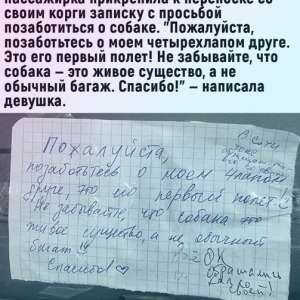 пассажирка прикрепила к переноске со
своим корги записку с просьбой
позаботиться о собаке. "Пожалуйста,
позаботьтесь о моем четырехлапом друге.
Это его первый полет! Не забывайте, что
собака – это живое существо, а не
обычный багаж. Спасибо!" – написала
девушка.
Пожалуйста,
позаботьтесь о моем 4лапом
друге, это его первый полет!
Не забывайте, что собака это
живое существо, а не обычный
багаж!
Спасибо!
ОК
обращались
как со
своей!